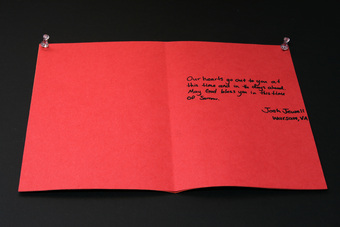 Our hearts go out to you at
this time and in the days ahead
May God bless you in this time
of Sorrow.
Josh
VA